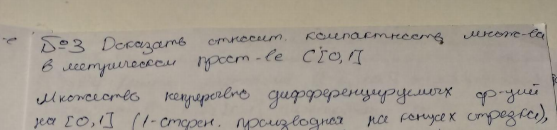 Б№3 Доказать относит. компактность множ-ва
в метрическом прост-ве C[0,1]
Множество непрерывно дифференцируемых ф-ций
на [0,1] (1-сторон. производная на концах отрезка),